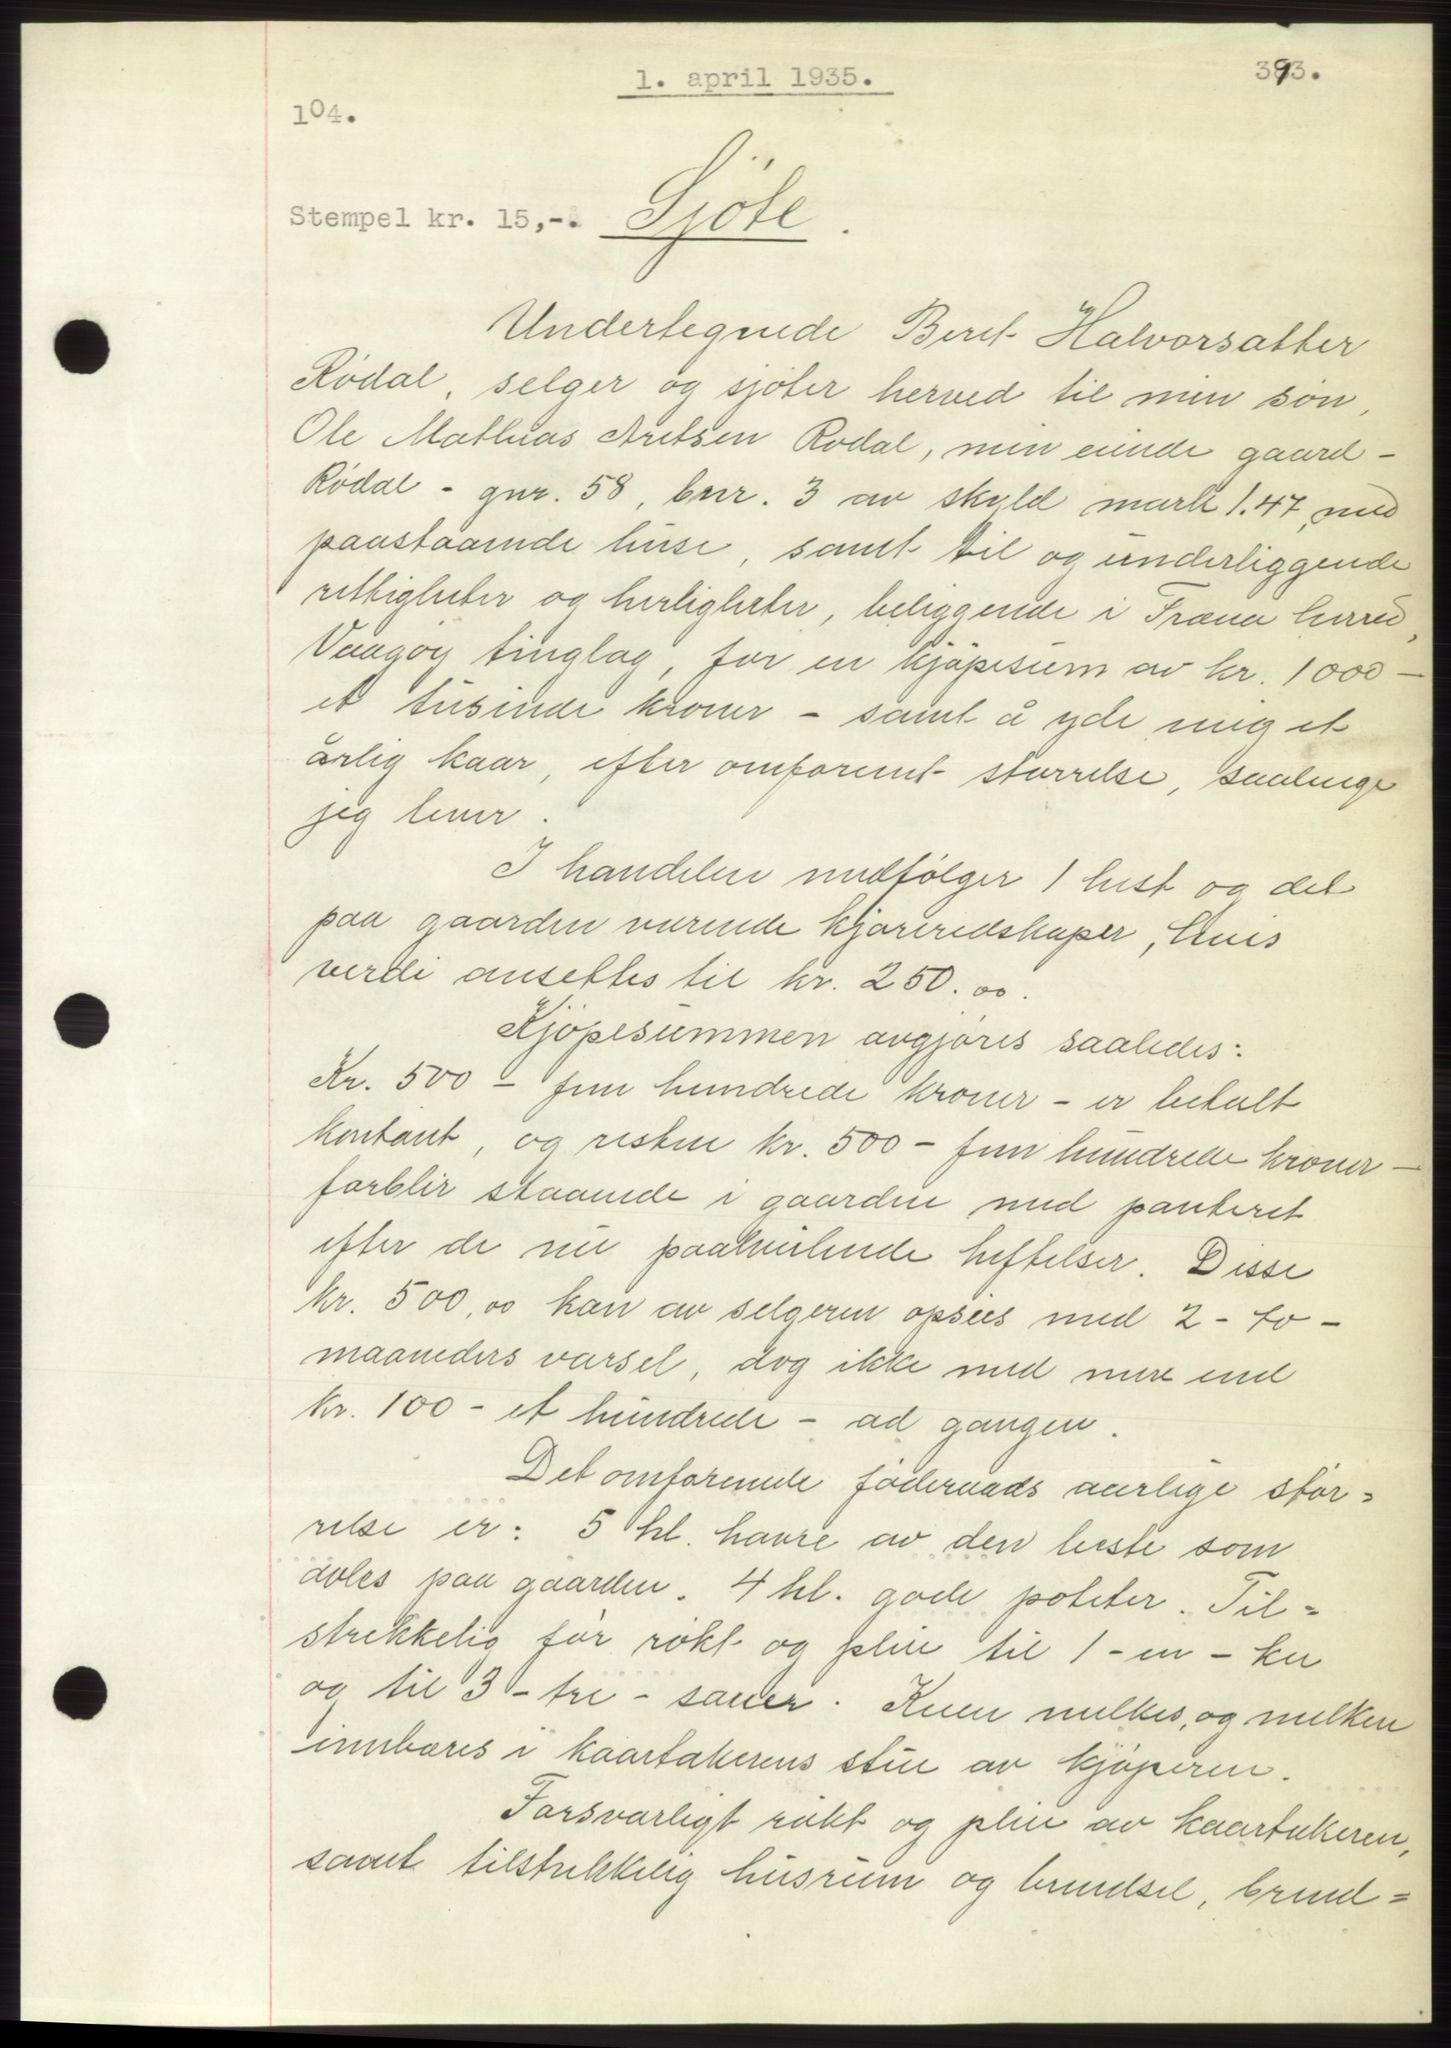 1. april 1935.
393.
104.
Stempel kr. 15,-. Sjöte.
Undertegnede Beret Halvorsatter
Rødal, selger og sjøter herved til min søn,
Ole Mathias Aretsen Rødal, min eiende gaard -
Rødal - gnr. 58, bnr. 3 av skyld mark 1.47, med
paastaaende huse, samt til og underliggende
rettigheter og herligheter, beliggende i Fræna herred,
Vaagøy tinglag, for en kjøpesum av kr. 1000 -
et tusinde kroner - samt å yde mig et
årlig kaar, efter omforent størrelse, saalenge
jeg lever.
I handelen medfølger 1 hest og det
paa gaarden værende kjøreredskaper, hvis
verdi ansettes til kr. 250.00.
Kjøpesummen avgjøres saaledes:
Kr. 500 - fem hundrede kroner - er betalt
kontant, og resten kr. 500 - fem hundrede kroner -
forblir staaende i gaarden med panteret
efter de nu paahvilende heftelser. Disse
kr. 500,00 kan av selgeren opsies med 2 - to -
maaneders varsel, dog ikke med mere end
kr. 100 - et hundrede - ad gangen.
Det omforende føderaads aarlige stør=
relse er: 5 hl. havre av den beste som
avles paa gaarden. 4 hl. gode poteter. Til=
strekkelig för røkt og pleie til 1 - en - ku
og til 3 - tre - sauer. Kuen melkes, og melken
innbæres i kaartakerens stue av kjøperen.
Forsvarligt røkt og pleie av kaartakeren,
samt tilstrekkelig husrum og brendsel, brend=